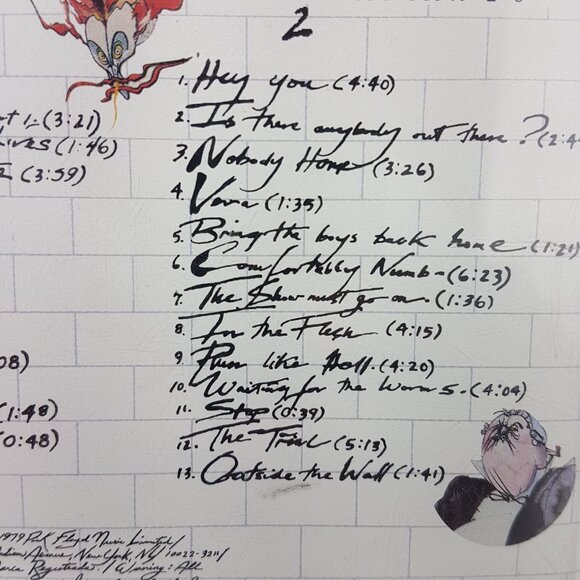 2
1. Hey you (4:40)
2. Is there anybody out there? (2:4
3. Nobody Home (3:26)
4. Vera (1:35)
5. Bring the boys back home (1:21)
6. Comfortably Numb - (6:23)
7. The Show must go on. (1:36)
8. In the Flesh (4:15)
9. Run like Hell. (4:20)
10. Waiting for the Worms. (4:04)
11. Stop (0:39)
12. The Trial (5:13)
13. Outside the Wall (1:41)
t 1. (3:21)
ives (1:46)
2 (3:59)
08)
(1:48)
(0:48)
1979 Pink Floyd Music Limited/
Avenue, New York, NY 10022-3211/
arca Registrada. / Warning: All